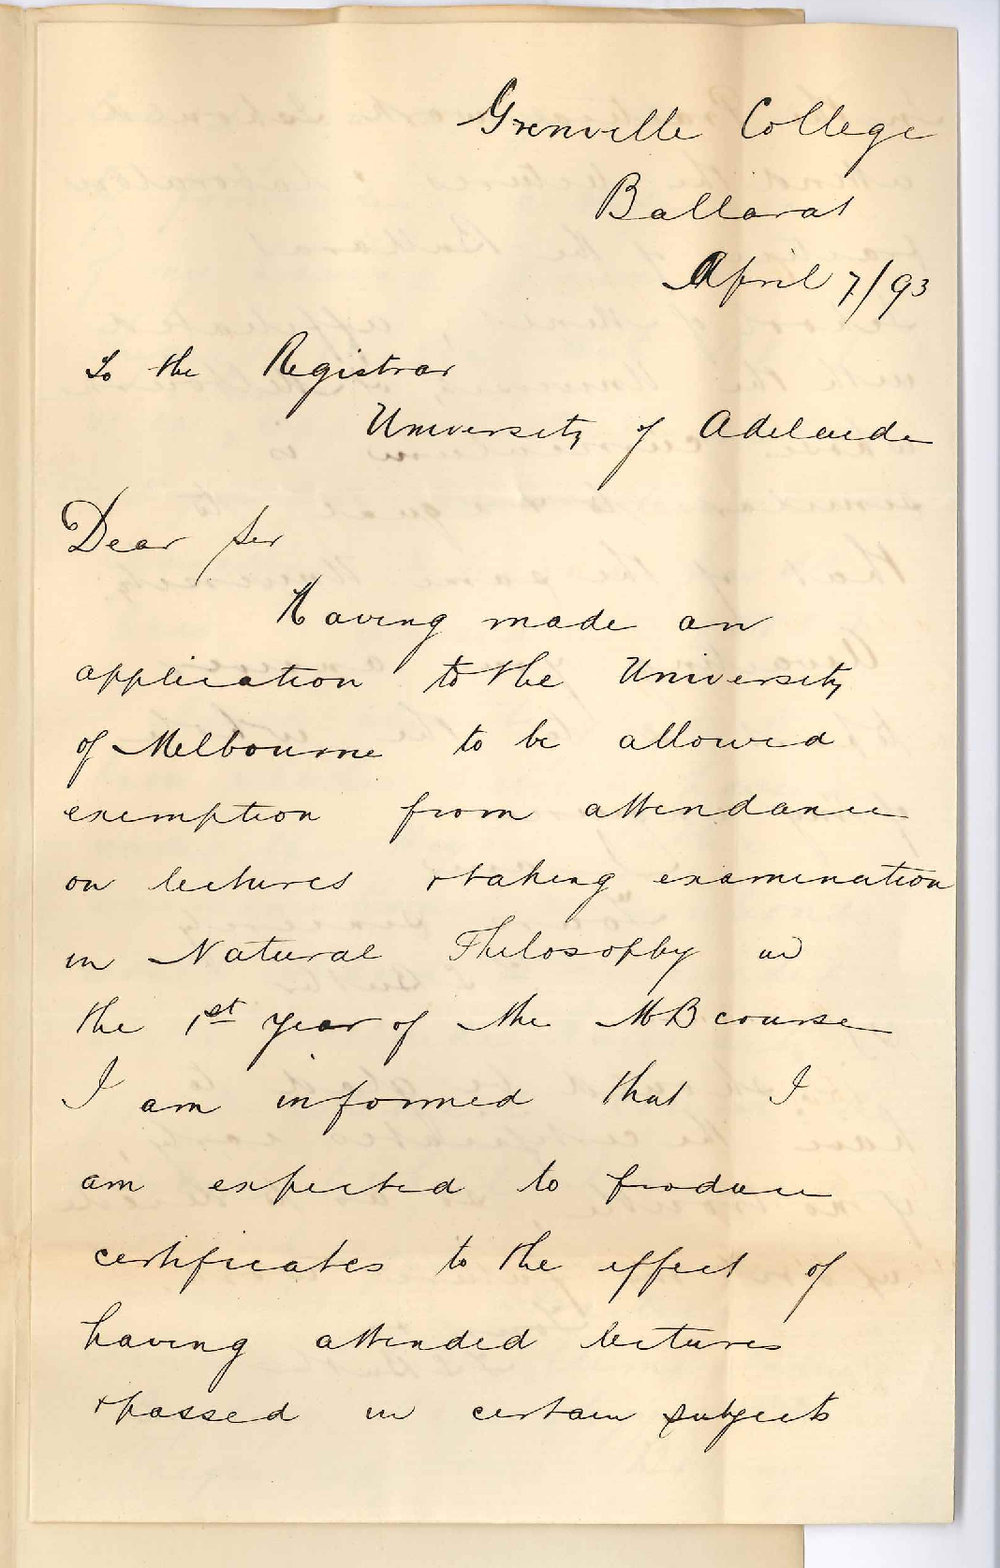 Grenville College
Ballarat
April 7/93
To the Registrar
University of Adelaide
Dear Sir
Having made an
application to the University
of Melbourne to be allowed
exemption from attendance
on lectures & taking examination
in Natural Philosophy in
the 1st year of the MB course
I am informed that I
am expected to produce
certificates to the effect of
having attended lectures
& passed in certain subjects